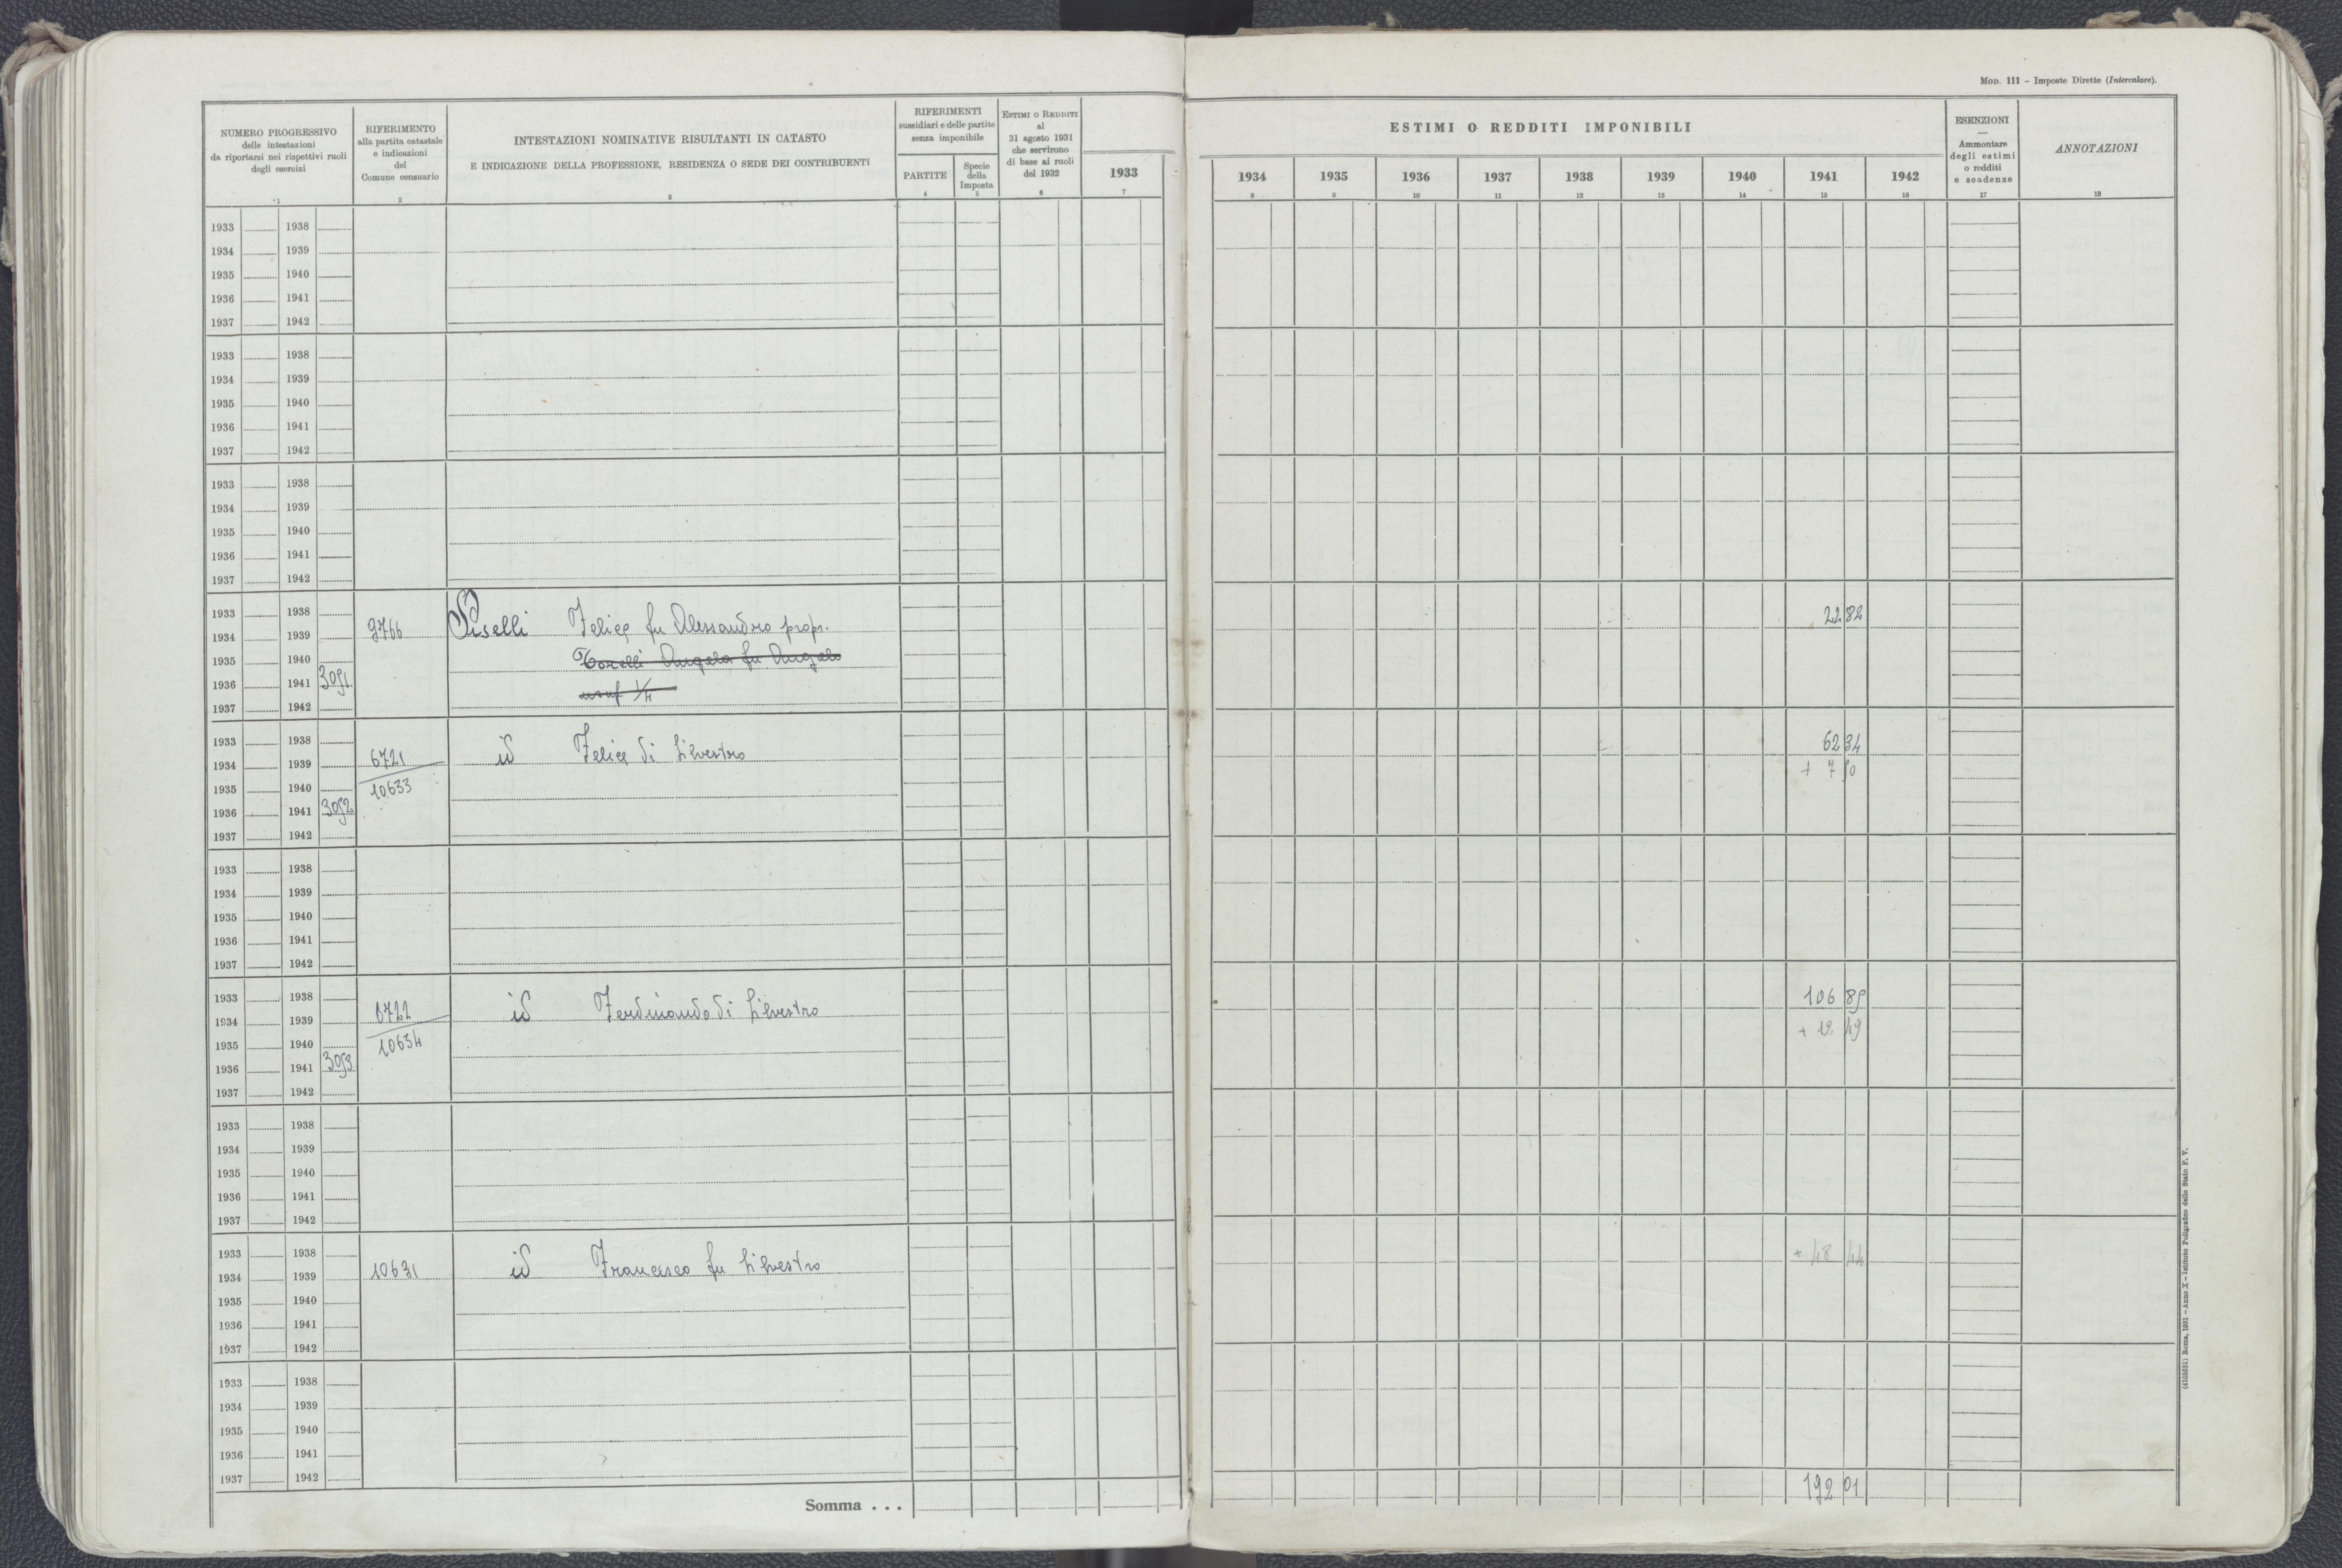 MOD. 111 – Imposte Dirette (Intercalare).
NUMERO PROGRESSIVO
delle intestazioni
da riportarsi nei rispettivi ruoli
degli esercizi
1
RIFERIMENTO
alla partita catastale
e indicazioni
del
Comune censuario
2
INTESTAZIONI NOMINATIVE RISULTANTI IN CATASTO
E INDICAZIONE DELLA PROFESSIONE, RESIDENZA O SEDE DEI CONTRIBUENTI
3
RIFERIMENTI
sussidiari e delle partite
senza imponibile
PARTITE
4
Specie
della
Imposta
5
ESTIMI O REDDITI
al
31 agosto 1931
che servirono
di base ai ruoli
del 1932
6
1933
7
ESTIMI O REDDITI IMPONIBILI
1934 1935 1936 1937 1938 1939 1940 1941 1942
8 9 10 11 12 13 14 15 16
ESENZIONI
—
Ammontare
degli estimi
o redditi
e scadenze
17
ANNOTAZIONI
18
1933 1938
1934 1939
1935 1940
1936 1941
1937 1942
1933 1938
1934 1939
1935 1940
1936 1941
1937 1942
1933 1938
1934 1939
1935 1940
1936 1941
1937 1942
1933 1938 22 82
1934 1939 9766 Piselli Felice fu Alessandro propr.
1935 1940 Torelli Angela fu Angelo
1936 1941 3091 usuf 1/4
1937 1942
1933 1938 62 34
1934 1939 6721 id Felice di Silvestro + 7 50
1935 1940 10633
1936 1941 3092
1937 1942
1933 1938
1934 1939
1935 1940
1936 1941
1937 1942
1933 1938 106 85
1934 1939 6722 id Ferdinando di Silvestro + 12 49
1935 1940 10634
1936 1941 3093
1937 1942
1933 1938
1934 1939
1935 1940
1936 1941
1937 1942
1933 1938 + 48 44
1934 1939 10631 id Francesco fu Silvestro
1935 1940
1936 1941
1937 1942
1933 1938
1934 1939
1935 1940
1936 1941
1937 1942
Somma . . . 192 01
Roma, 1931 – Anno X – Istituto Poligrafico dello Stato P. V.